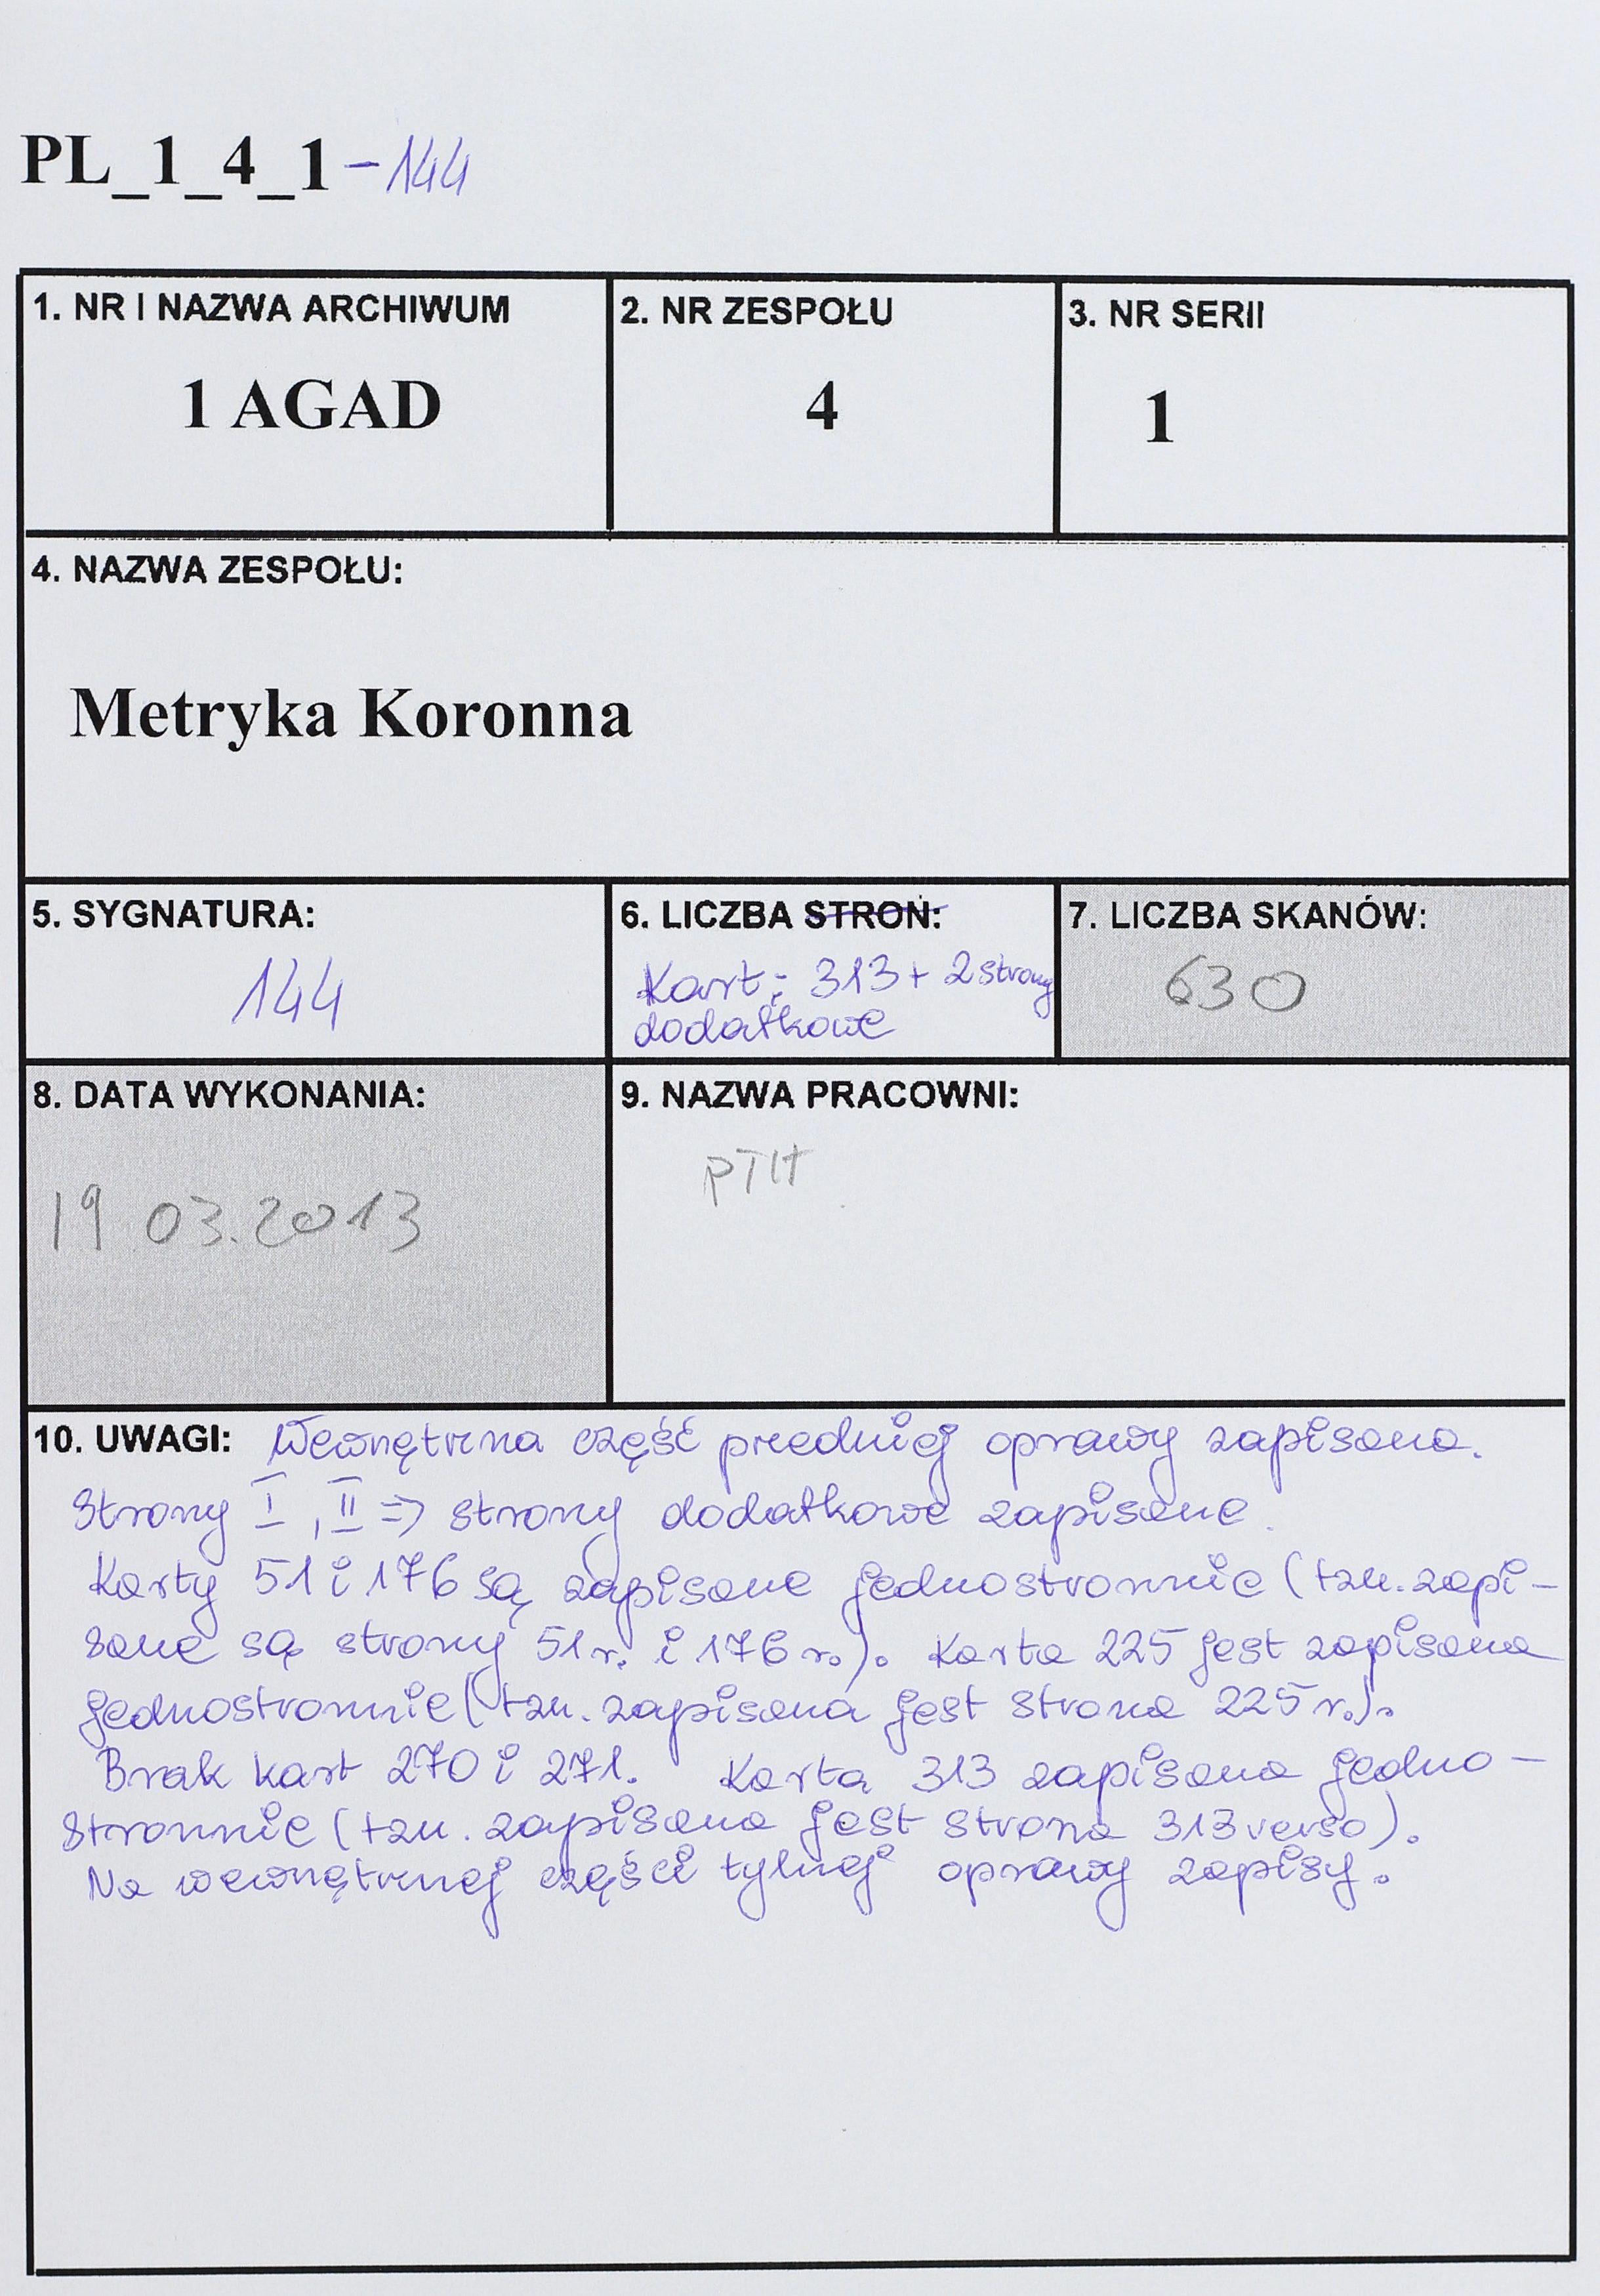 PL_1_4_1-144
1. NR I NAZWA ARCHIWUM
1 AGAD
2. NR ZESPOŁU
4
3. NR SERII
1
4. NAZWA ZESPOŁU:
Metryka Koronna
5. SYGNATURA:
144
6. LICZBA STRON:
Kart: 313 + 2 strony
dodatkowe
7. LICZBA SKANÓW:
630
8. DATA WYKONANIA:
19 03.2013
9. NAZWA PRACOWNI:
PTH
10. UWAGI: Wewnętrzna część przedniej oprawy zapisana.
Strony I, II => strony dodatkowe zapisane.
Karty 51 i 176 są zapisane jednostronnie (tzn. zapi-
sane są strony 51r. i 176 r.). Karta 225 jest zapisana
jednostronnie (tzn. zapisana jest strona 225 r.).
Brak kart 270 i 271. Karta 313 zapisana jedno-
stronnie (tzn. zapisana jest strona 313 verso).
Na wewnętrznej części tylnej oprawy zapisy.